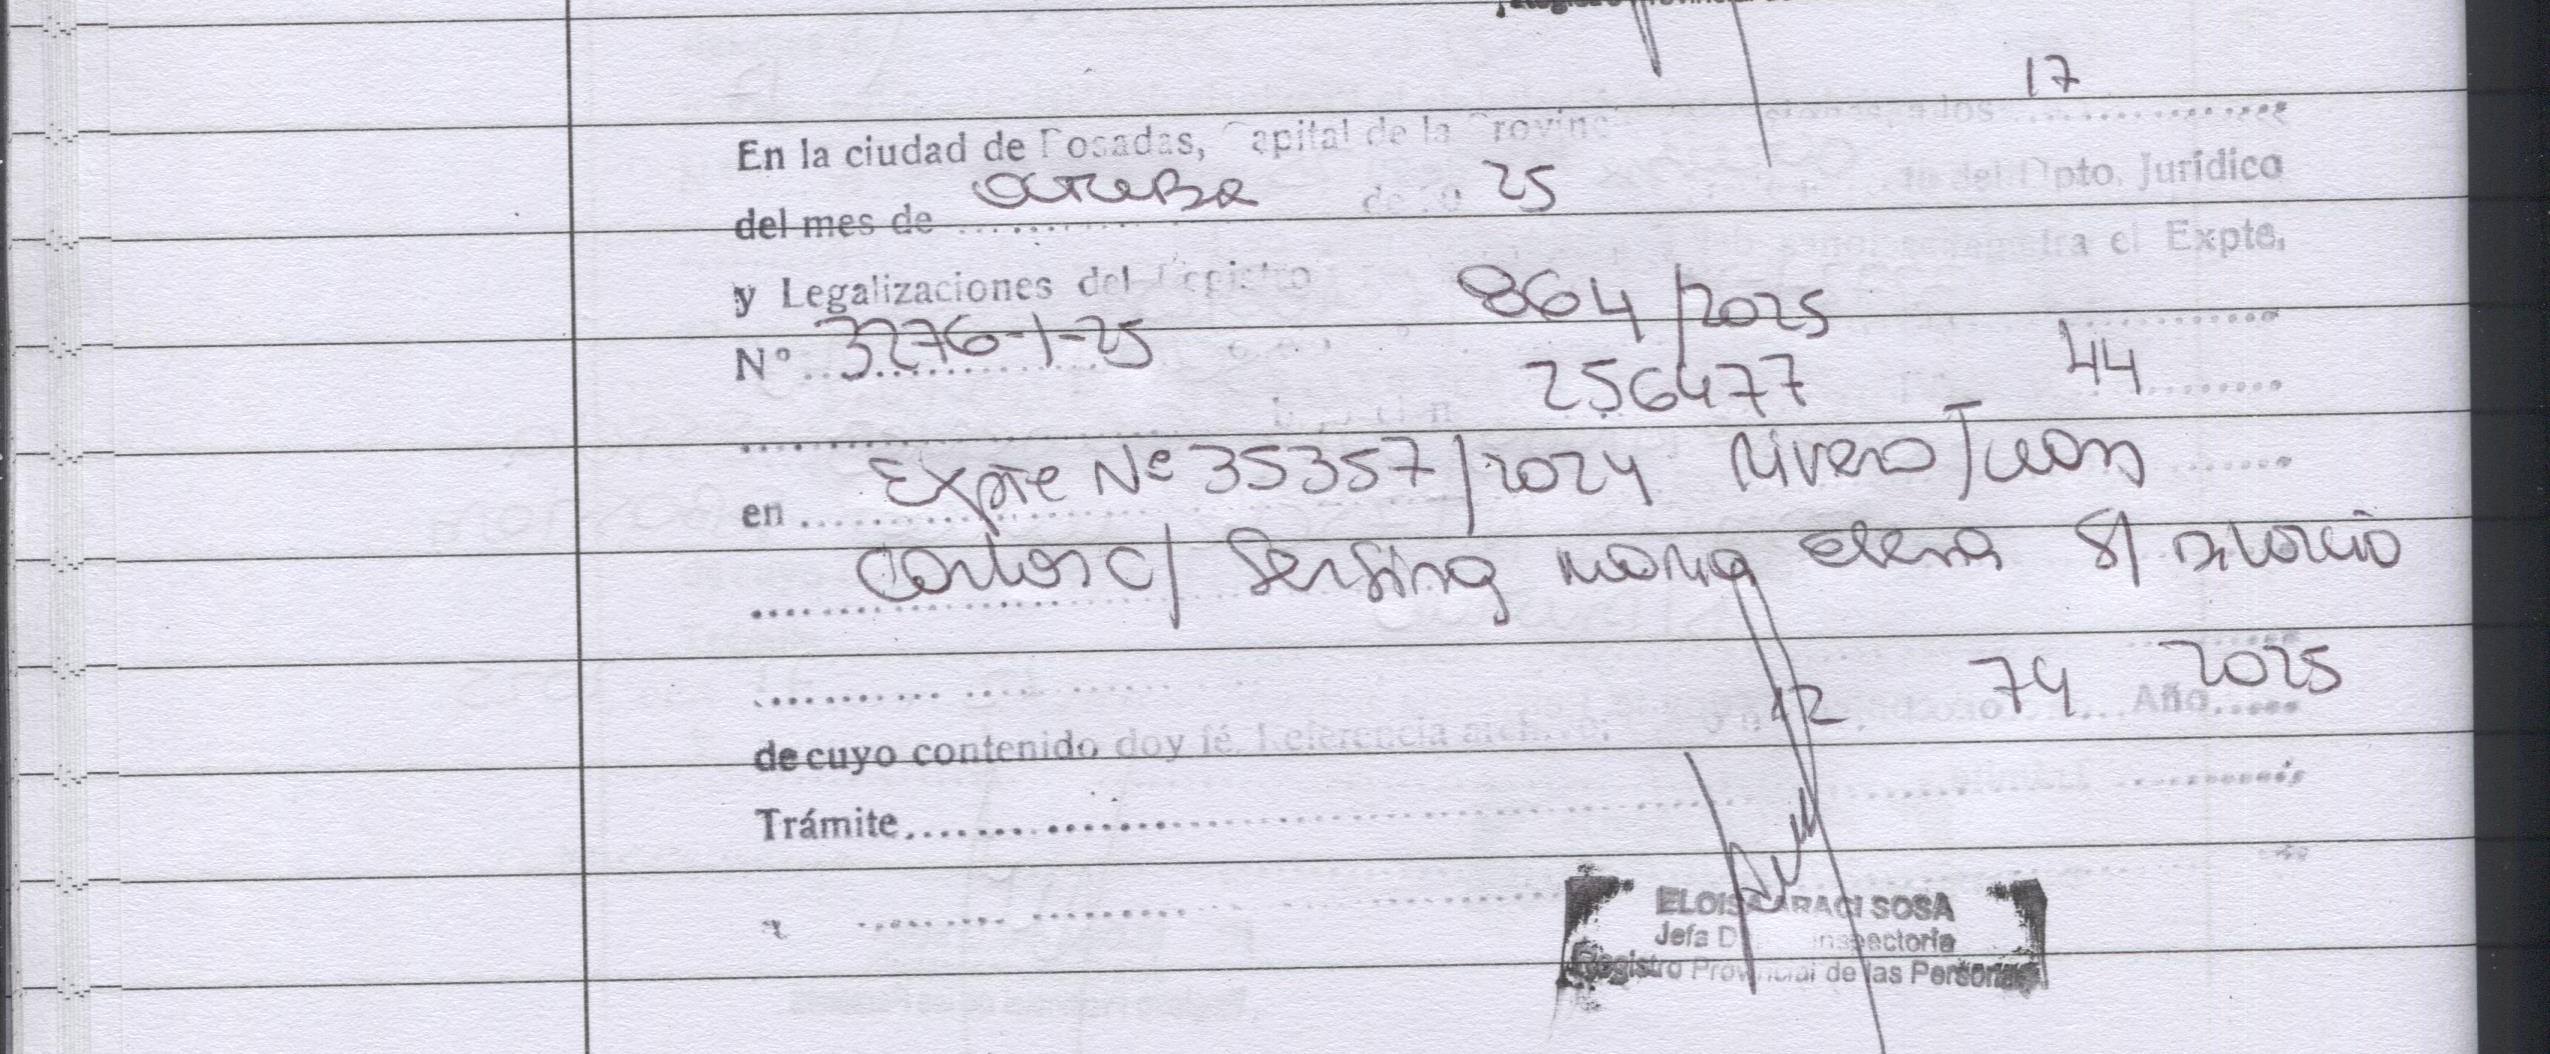 17
En la ciudad de Posadas, Capital de la Provinc
del mes de octubre de 20 25 del Dpto. Jurídico
y Legalizaciones del Registro el Expte.
N° 3276-1-25 864/2025
256477 44
en Expte Nº 35357/2024 Rivero Juan
Carlos c/ Sersing Maria Elena S/ divorcio
de cuyo contenido doy fé. Referencia archivo: 12 74 Año 2025
Trámite
ELOISA ARACI SOSA
Jefa D Inspectoria
Registro Provincial de las Personas